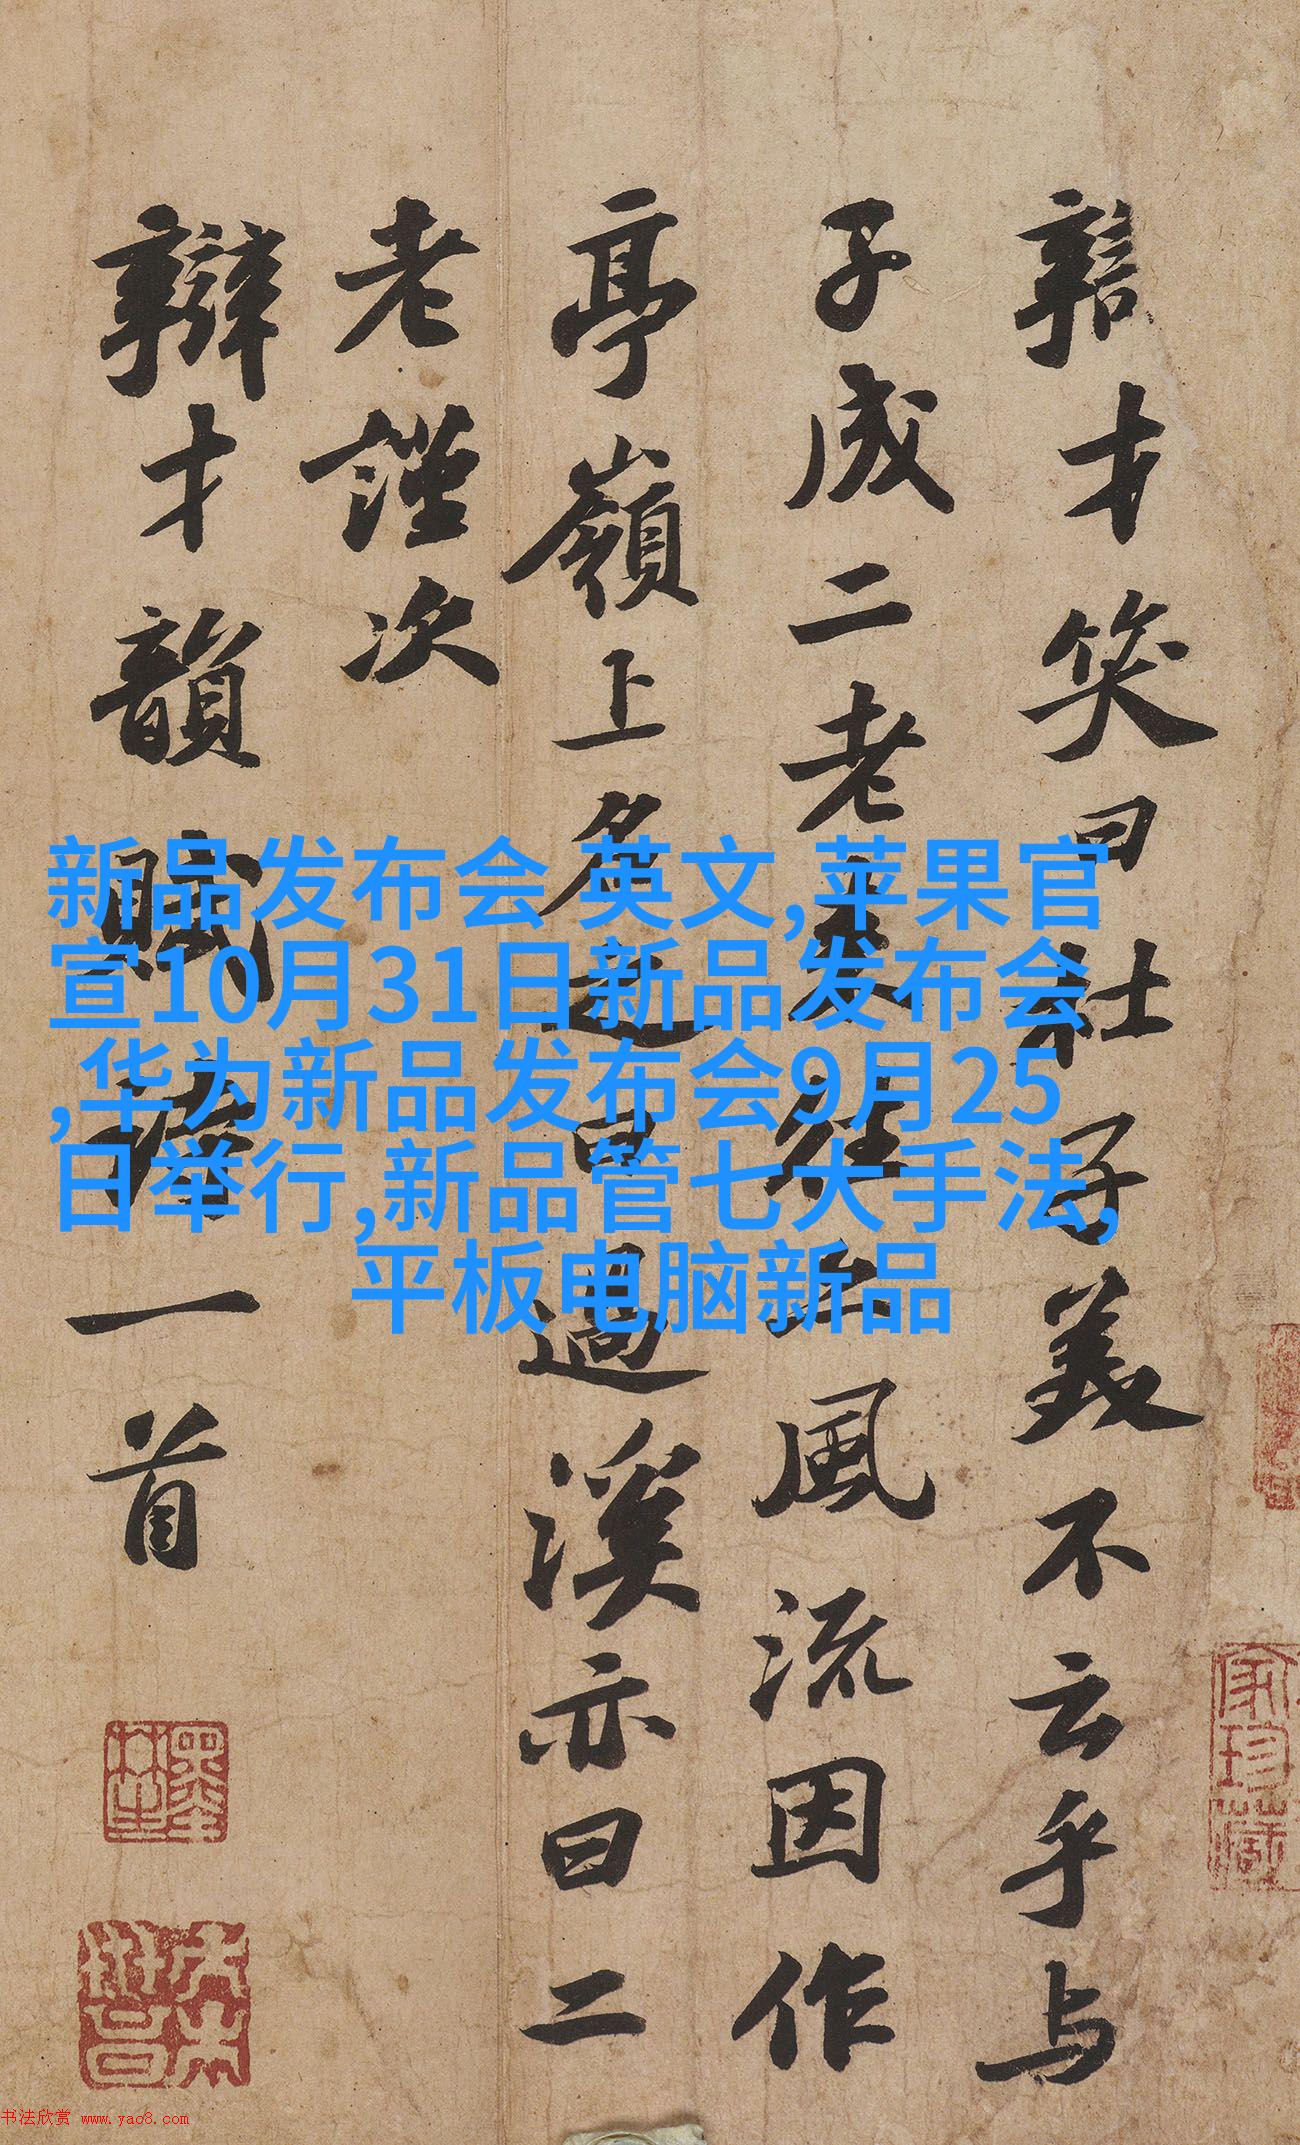 辯才笑曰杜子美不云乎与
子成二老来往亦風流因作
亭嶺上名之曰過溪亦曰二
老謹次
辯才韻賦詩一首
新品发布会 英文,苹果官
宣10月31日新品发布会
,华为新品发布会9月25
日举行,新品管七大手法,
平板电脑新品
家珍藏
书法欣赏 www.yac8.com